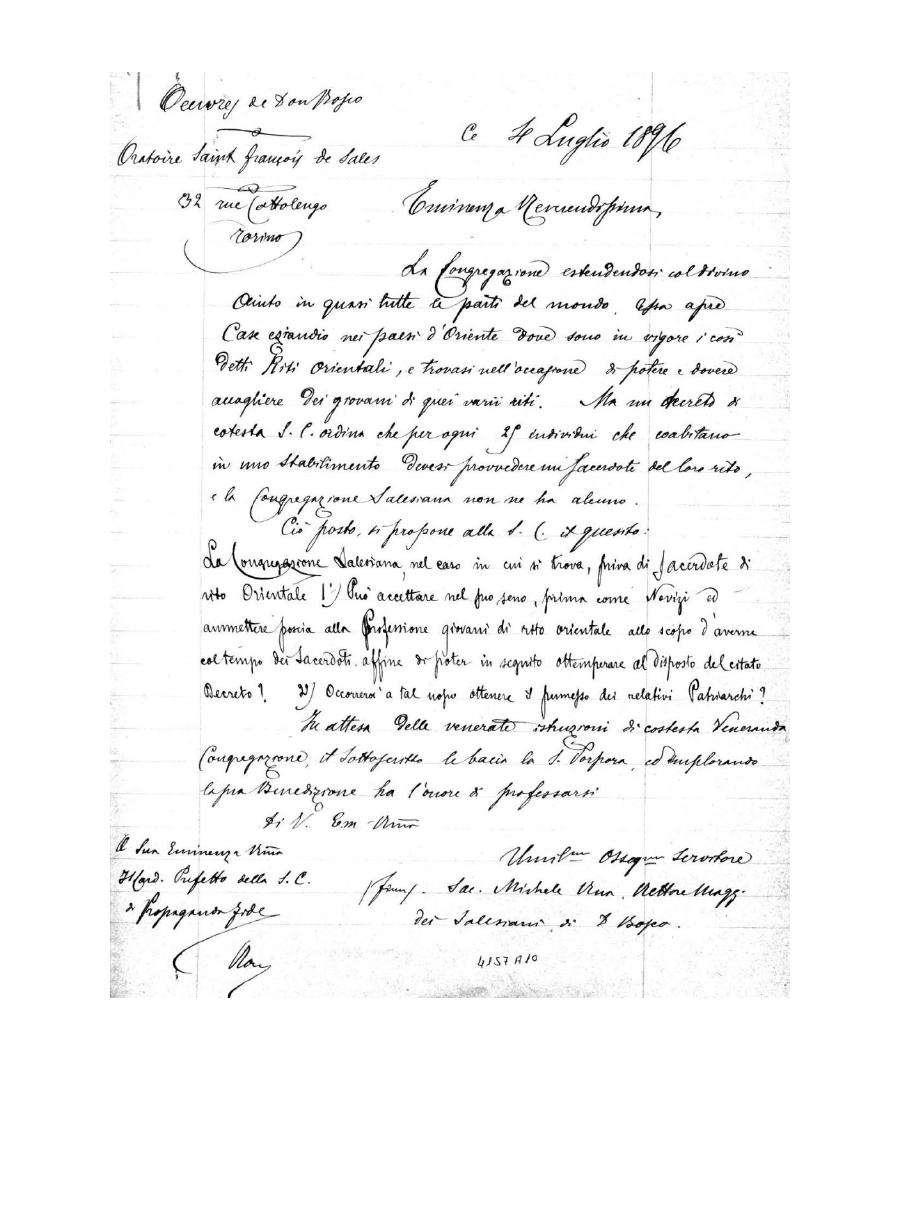 Oeuvres de Don Bosco
Oratoire Saint François de Sales
32 rue Cottolengo
Torino
Ce 4 Luglio 1896
Eminenza Reverendissima,
La Congregazione estendendosi col divino
aiuto in quasi tutte le parti del mondo, essa apre
Case eziandio nei paesi d'Oriente dove sono in vigore i così
detti Riti Orientali, e trovasi nell'occasione di potere e dovere
accogliere dei giovani di quei varii riti. Ma un decreto di
cotesta S. C. ordina che per ogni 25 individui che coabitano
in uno Stabilimento devesi provvedere un sacerdote del loro rito,
e la Congregazione Salesiana non ne ha alcuno.
Ciò posto, si propone alla S. C. il quesito:
La Congregazione Salesiana, nel caso in cui si trova, priva di Sacerdote di
rito Orientale 1°) Può accettare nel suo seno, prima come Novizi ed
ammettere poscia alla Professione giovani di rito orientale allo scopo d'averne
col tempo dei Sacerdoti affine di poter in seguito ottemperare al disposto del citato
Decreto? 2°) Occorrerà a tal uopo ottenere il permesso dei relativi Patriarchi?
In attesa delle venerate istruzioni di costesta Veneranda
Congregazione, il Sottoscritto le bacia la S. Porpora, ed implorando
la sua Benedizione ha l'onore di professarsi
di V. Em Rma
Umil.mo Osseq.mo Servitore
(firm). Sac. Michele Rua, Rettore Magg.
dei Salesiani di D Bosco.
A Sua Eminenza Rma
Il Card. Prefetto della S. C.
di Propaganda Fide
Roma
4157 A 10